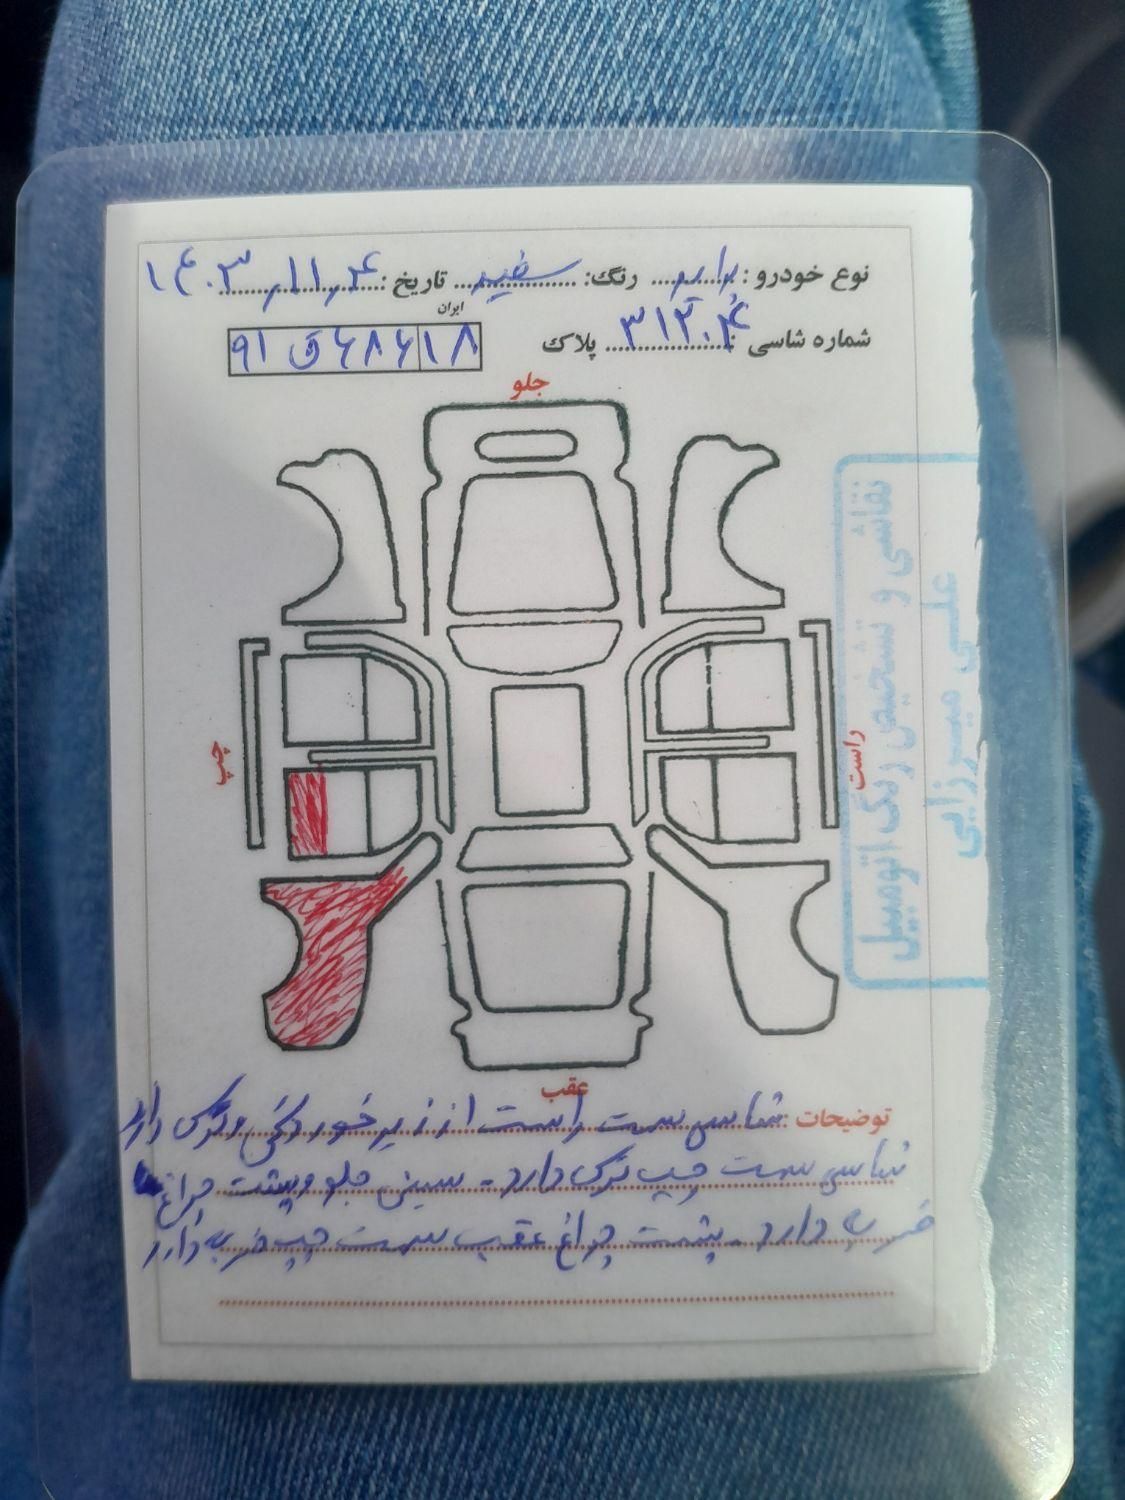 نوع خودرو : پراید رنگ: سفید تاریخ : ۱۴۰۳,۱۱,۴
ایران
شماره شاسی : ۳۱۲۰۴ پلاک ۹۱ ق ۶۸۶ ۱۸
جلو
چپ
راست
عقب
توضیحات : شاسی سمت راست از زیر خوردگی و ترک دارد
شاسی سمت چپ ترک دارد - سینی جلو و پشت چراغ
ضربه دارد - پشت چراغ عقب سمت چپ ضربه دارد
نقاشی و تشخیص رنگ اتومبیل
علی میرزایی